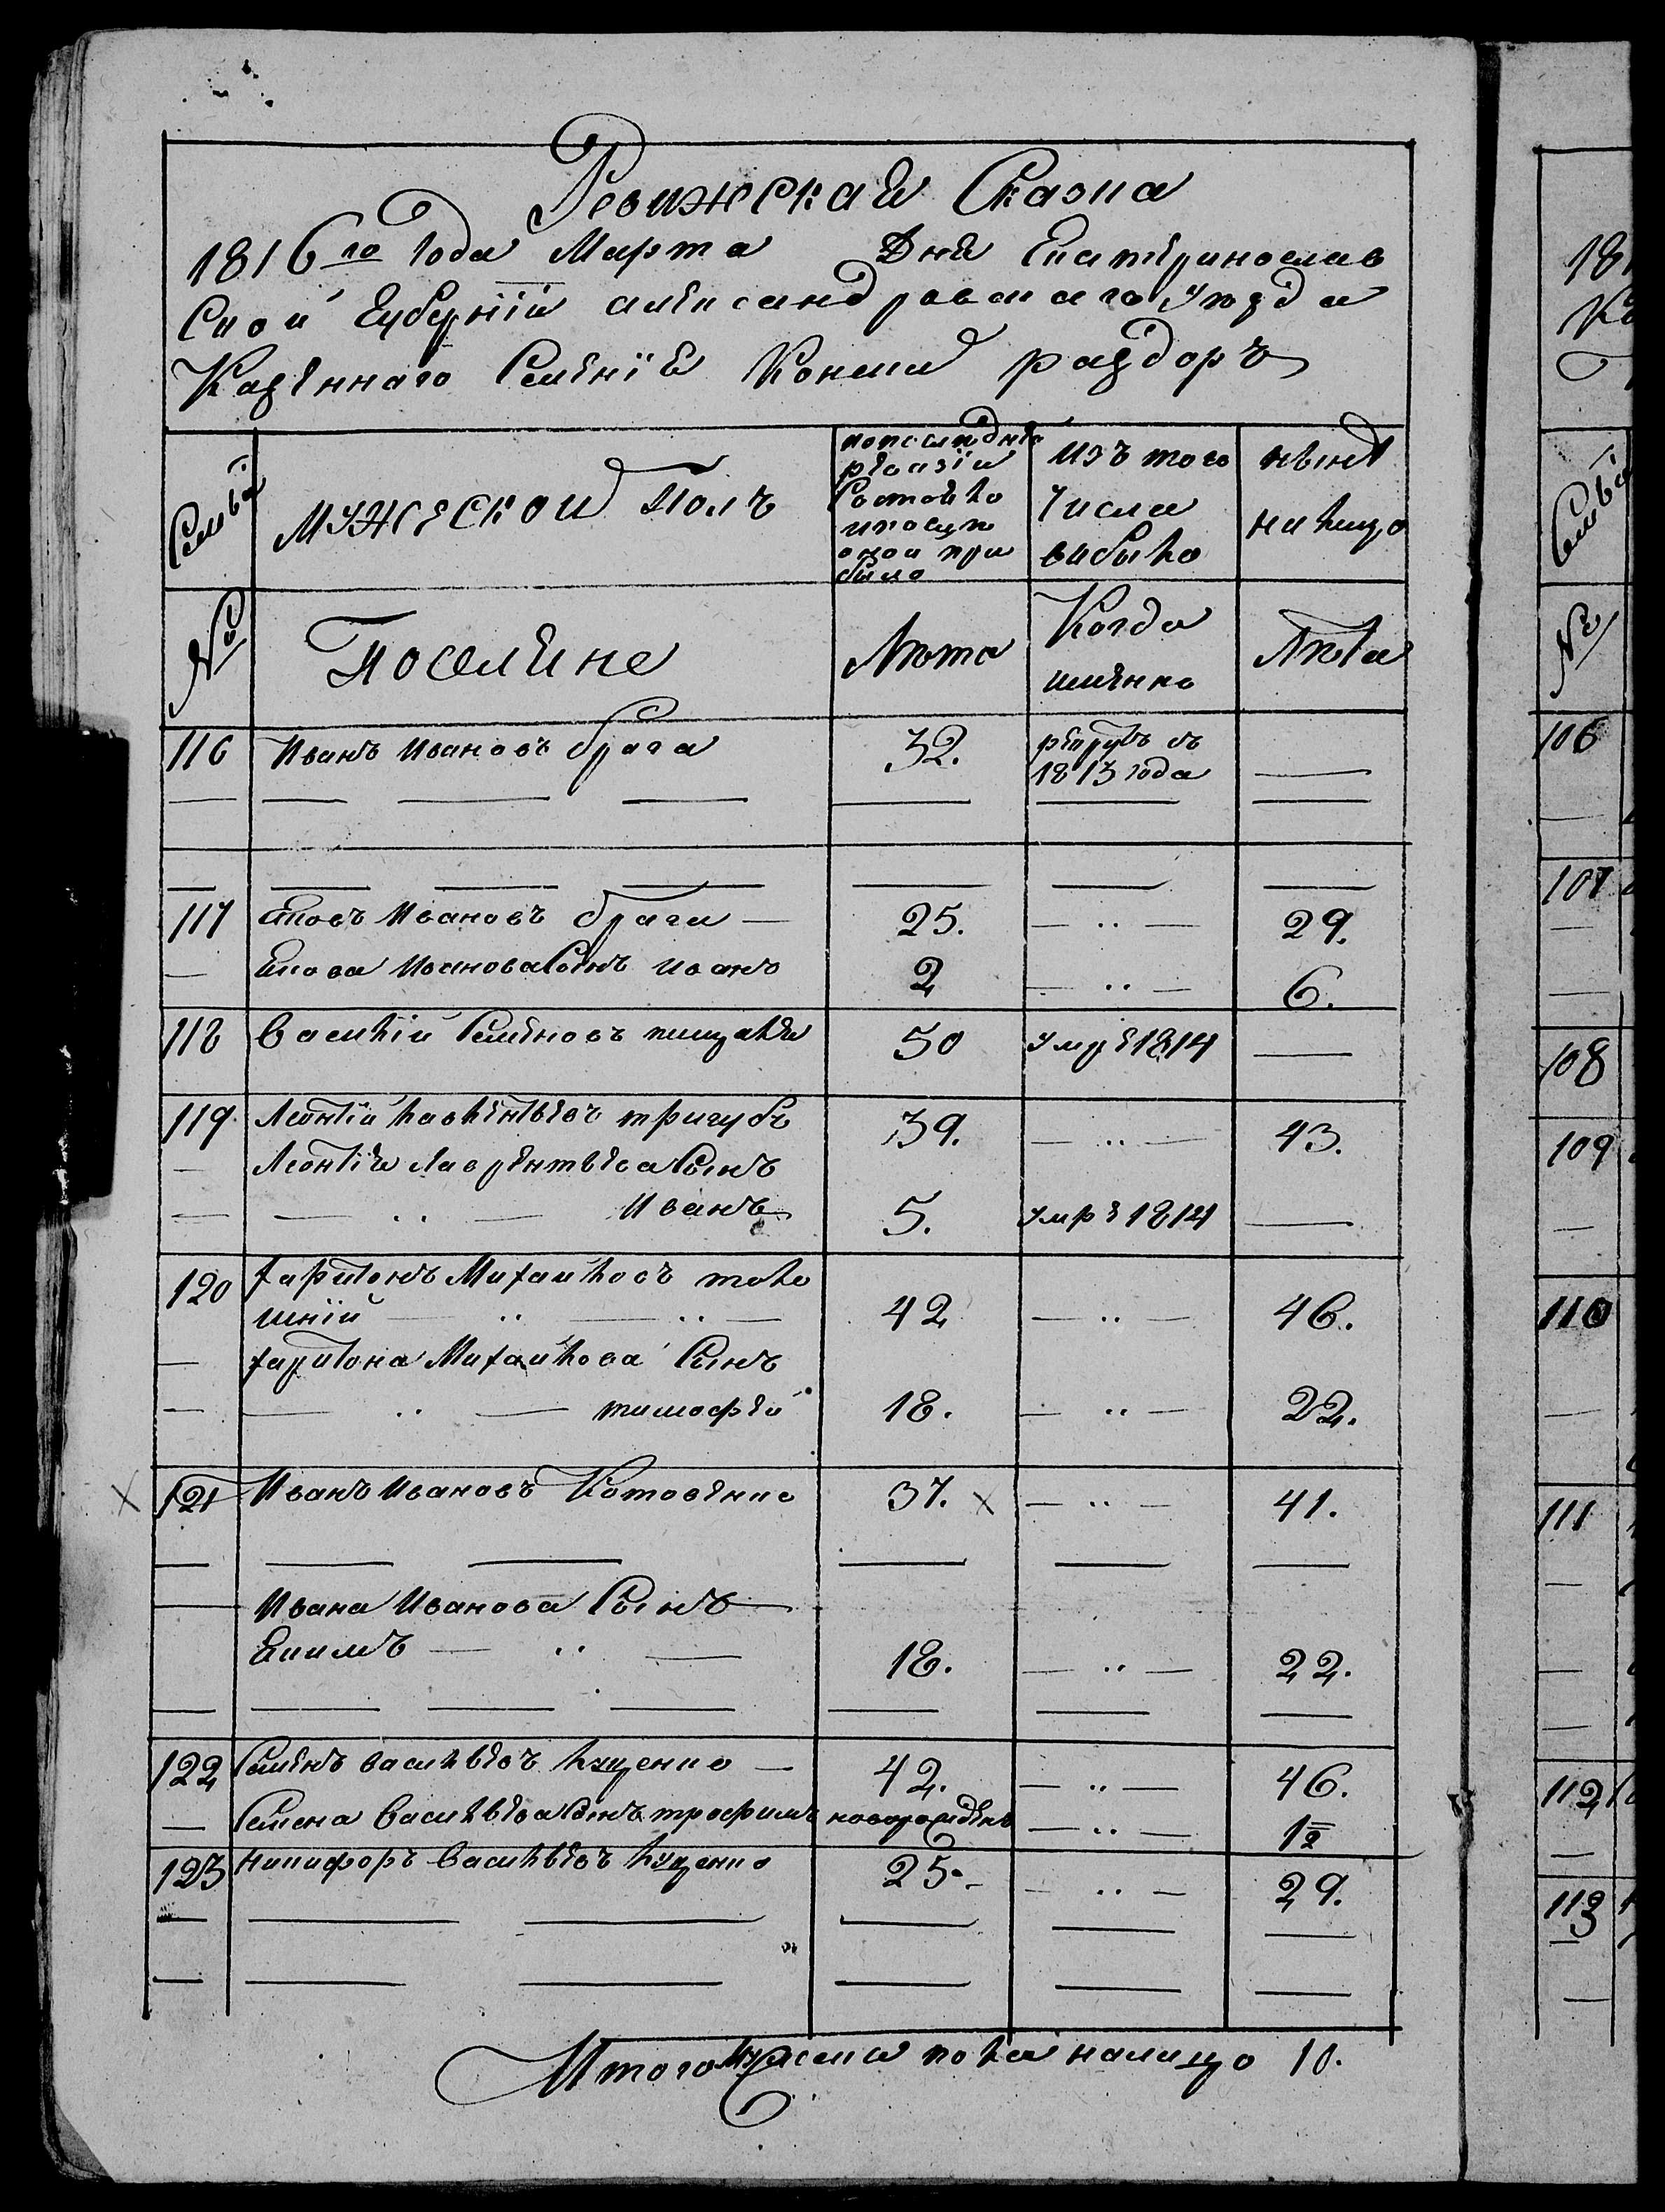 Ревижская Сказка
1816го года Марта Дня Екатеринослав
Ской Губернїи александровскаго уезда
Казенного Селенїя Конски раздоръ
Семьи
мужескои полъ
попоследней
ревизїи
Состояло
ипослѣ
оной при
было
изъ того
числа
выбыло
нынѣ
налицо
№
Поселяне
Лѣта
Когда
именно
Лѣта
116 Иванъ Ивановъ брага 32. рекрутъ съ
1813 года
117 яковъ Ивановъ брага 25. 29.
якова Иванова Сынъ иванъ 2 6.
118 Василїи Семеновъ 50 умре 1814
119 Леонтїй лаврентьевъ тригубъ 39. 43.
Леонтїя лаврентьева Сынъ
Иванъ 5. умре 1814
120 харитонъ Михайловъ
42 46.
харитона Михайлова Сынъ
тимофей 18. 22.
121 Иванъ Ивановъ Котовенко 37. x 41.
Ивана Иванова Сынъ
Екимъ 18. 22.
122 Семенъ васильевъ куценко 42. 46.
Семена васильева Сынъ трофимъ новорожденъ 1½
123 никифоръ васильевъ куценко 25. 29.
Итого мужеска пола налицо 10.
18
Семьи
№
106
107
108
109
110
111
112
113